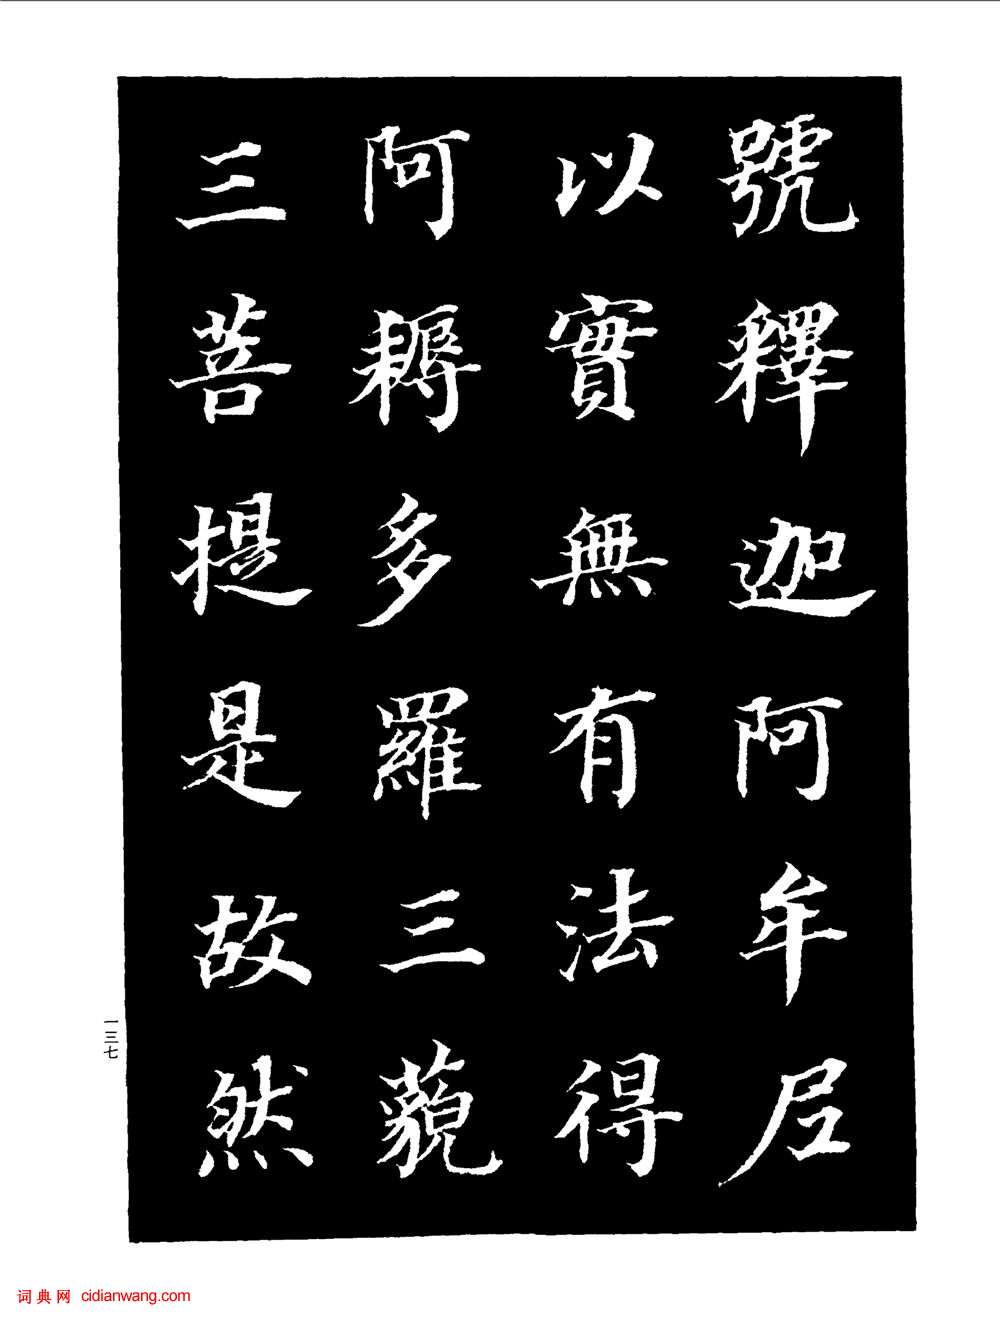 號釋迦阿牟尼
以實無有法得
阿耨多羅三藐
三菩提是故然
一三七
词典网 cidianwang.com